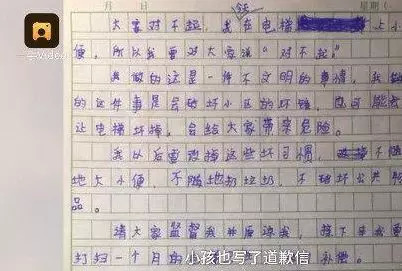 月 日 星期(
今天
大家对不起,我在电梯上小
便,所以我要对大家说"对不起"。
我做的这是一件不文明的事情,我做
的这件事是会破坏小区的环境,也可能会
让电梯坏掉,会给大家带来危险。
我以后要改掉这些坏习惯,不随
地大小便,不随地扔垃圾,不破坏公共物
品。
请大家监督我并原谅我,接下来我要
打扫一个月的 补偿。
小孩也写了道歉信